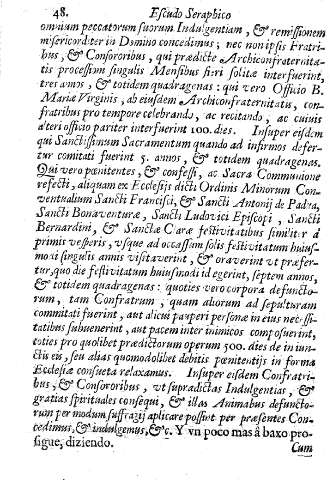 48. Escudo Seraphico
omnium peccatorum suorum Indulgentiam, & remissionem
misericorditer in Domino concedimus; nec non ipsis Fratri-
bus, & Consororibus, qui prædictæ Archiconfraternita-
tis processioni singulis Mensibus fieri solitæ interfuerint,
tres annos, & totidem quadragenas: qui vero Officio B.
Mariæ Virginis, ab eiusdem Archiconfraternitatus, con-
fratribus pro tempore celebrando, ac recitando, ac cuiuis
alteri officio pariter interfuerint 100. dies. Insuper eisdem
qui Sanctissimum Sacramentum quando ad infirmos defer-
tur comitati fuerint 5. annos, & totidem quadragenas.
Qui vero pœnitentes, & confessi, ac Sacra Communione
refecti, aliquam ex Ecclesijs dicti Ordinis Minorum Con-
ventualium Sancti Francisci, & Sancti Antonij de Padua,
Sancti Bonaventuræ, Sancti Ludovici Episcopi, Sancti
Bernardini, & Sanctæ Claræ festivitatibus similiter à
primis vesperis, vsque ad occassum solis festivitatum huius-
modi singulis annis visitaverint, & oraverint vt præfer-
tur, quo die festivitatum huiusmodi id egerint, septem annos,
& totidem quadragenas: quoties vero corpora defuncto-
rum, tam Confratrum, quam aliorum ad sepulturam
commitati fuerint, aut alicui pauperi personæ in eius necessi-
tatibus subuenerint, aut pacem inter inimicos composuerint,
toties pro quolibet prædictorum operum 500. dies de in iun-
ctis eis, seu alias quomodolibet debitis pœnitentijs in forma
Ecclesiæ consueta relaxamus. Insuper eisdem Confratri-
bus, & Consororibus, vt supradictas Indulgentias, &
gratias spirituales consequi, & illas Animabus defuncto-
rum per modum suffragij applicare possint per præsentes Con-
cedimus, & indulgemus, &c. Y vn poco mas â baxo pro-
sigue, diziendo.
Cum